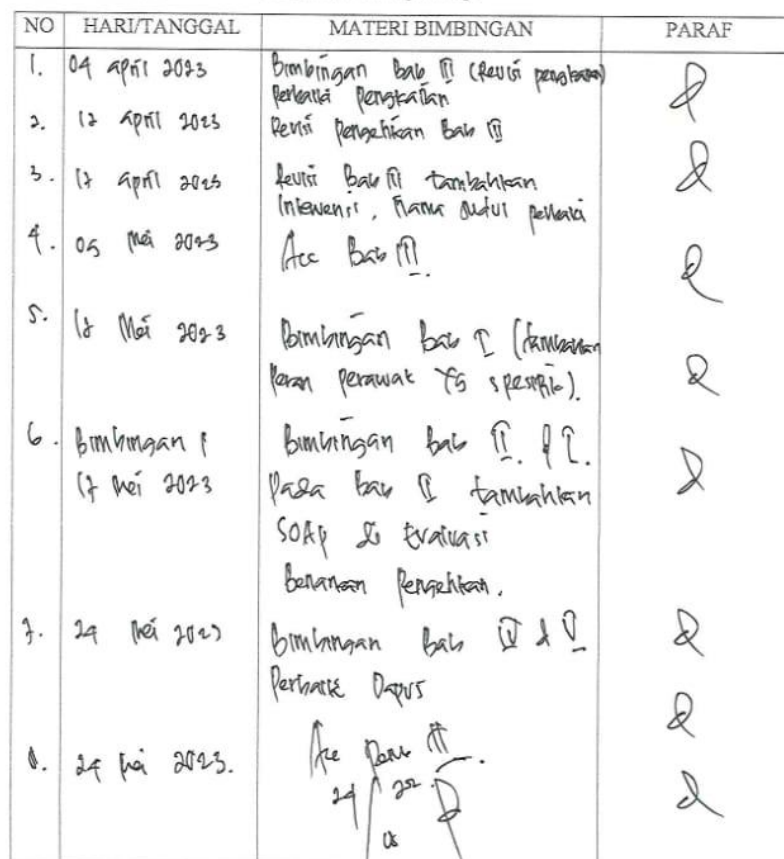 NO HARI/TANGGAL MATERI BIMBINGAN PARAF
1. 04 April 2023 Bimbingan Bab III (Revisi pengkajian)
Perbaiki Pengkajian
2. 12 April 2023 Revisi Pengetikan Bab III
3. 17 April 2023 Revisi Bab III tambahkan
Intervensi, Nama Judul perbaiki
4. 05 Mei 2023 Acc Bab III.
5. 12 Mei 2023 Bimbingan bab I (tambahkan
Peran perawat yg spesifik).
6. Bimbingan 17 Mei 2023 Bimbingan bab II. & I.
Pada bab II tambahkan
SOAP & Evaluasi
Benarkan Pengetikan.
7. 24 Mei 2023 Bimbingan Bab IV & V
Perbaiki Dapus
8. 24 Mei 2023. Acc
24